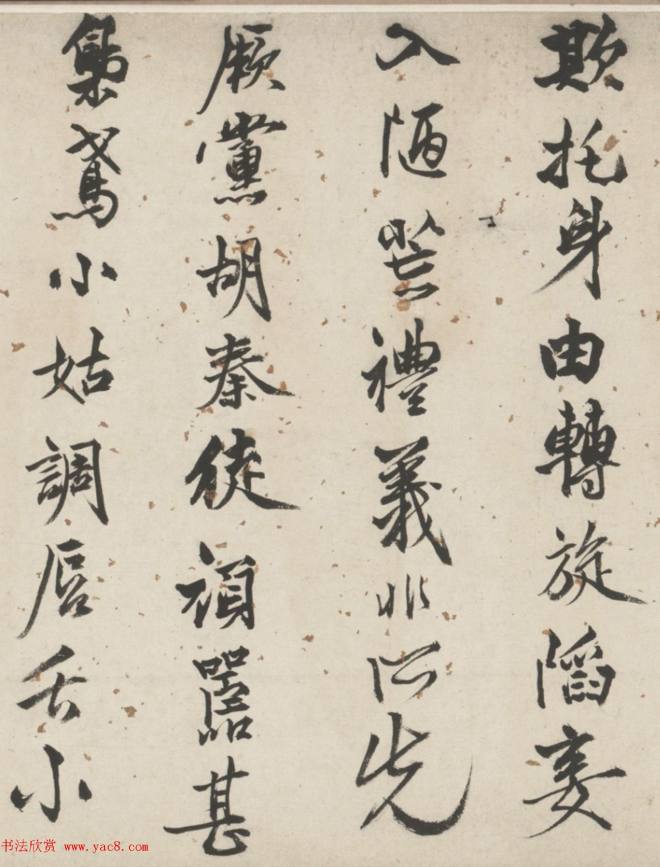 欺托身由轉旋陷妾
入陋禮義非所先
厥黨胡秦徒頑嚚甚
梟鳶小姑調唇舌小
书法欣赏 www.yac8.com